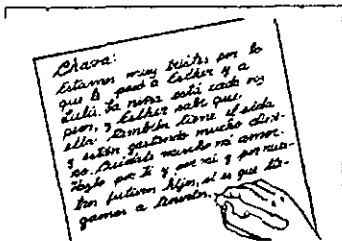 Chava:
Estamos muy tristes por lo
que le pasó a Esther y a
Lulú. La niña está cada vez
peor, y Esther sabe que
ella también tiene el sida
y están gastando mucho dine-
ro. Cuídate mucho mi amor.
Hazlo por ti y por mí y por nues-
tros futuros hijos, si es que lle-
gamos a tenerlos.